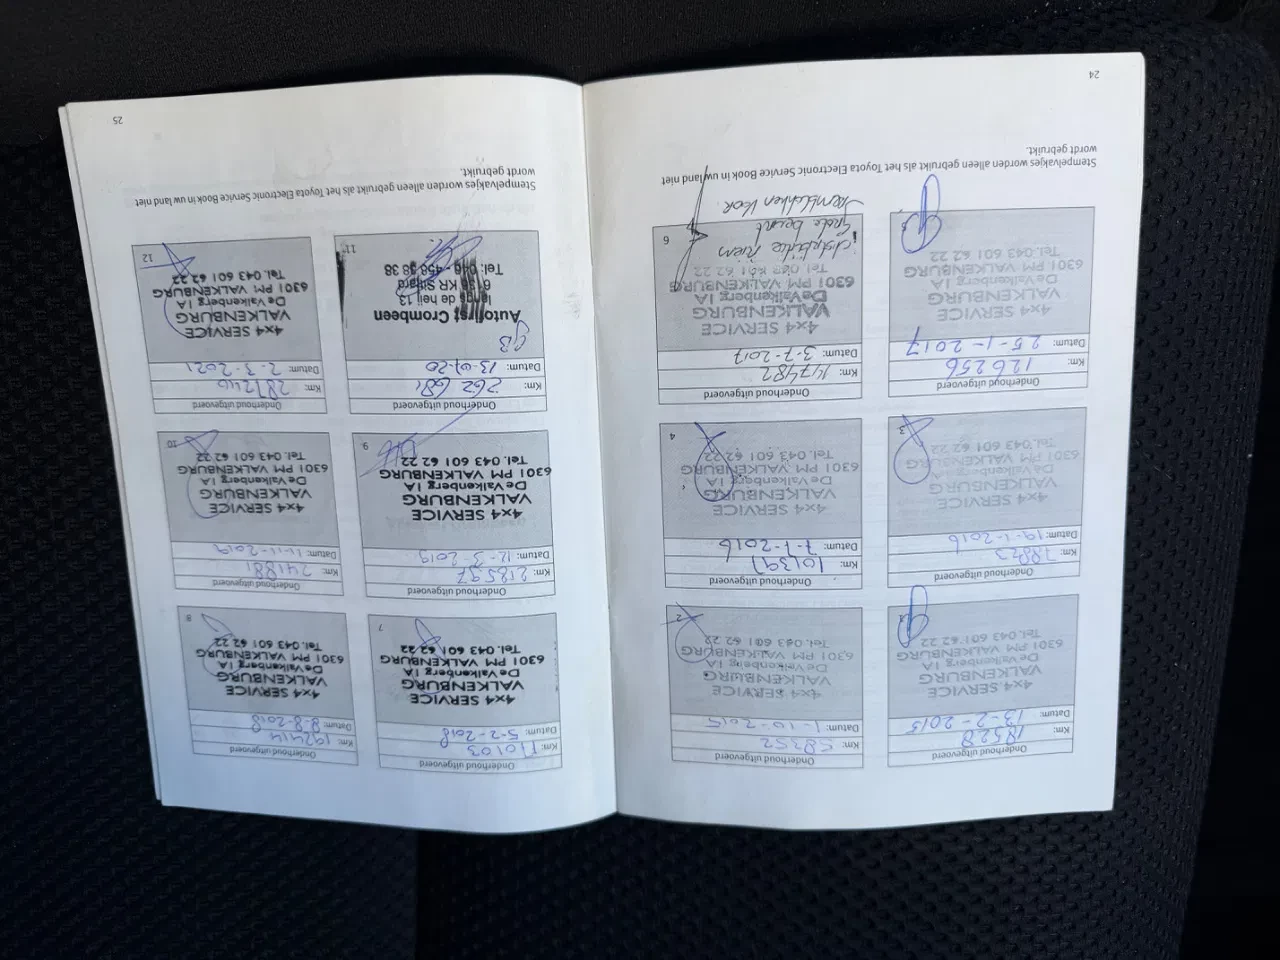 24
Stempelvakjes worden alleen gebruikt als het Toyota Electronic Service Book in uw land niet
wordt gebruikt.
Onderhoud uitgevoerd
Km: 18528
Datum: 13-2-2015
4x4 SERVICE
VALKENBURG
De Valkenberg 1A
6301 PM VALKENBURG
Tel. 043 601 62 22
1
Onderhoud uitgevoerd
Km: 58252
Datum: 1-10-2015
4x4 SERVICE
VALKENBURG
De Valkenberg 1A
6301 PM VALKENBURG
Tel. 043 601 62 22
2
Onderhoud uitgevoerd
Km: 78823
Datum: 19-1-2016
4x4 SERVICE
VALKENBURG
De Valkenberg 1A
6301 PM VALKENBURG
Tel. 043 601 62 22
3
Onderhoud uitgevoerd
Km: 101397
Datum: 7-7-2016
4x4 SERVICE
VALKENBURG
De Valkenberg 1A
6301 PM VALKENBURG
Tel. 043 601 62 22
4
Onderhoud uitgevoerd
Km: 126256
Datum: 25-1-2017
4x4 SERVICE
VALKENBURG
De Valkenberg 1A
6301 PM VALKENBURG
Tel. 043 601 62 22
5
Onderhoud uitgevoerd
Km: 147482
Datum: 3-7-2017
4x4 SERVICE
VALKENBURG
De Valkenberg 1A
6301 PM VALKENBURG
Tel. 043 601 62 22
6
distributie riem
Grote beurt
Remblokken Voor.
25
Stempelvakjes worden alleen gebruikt als het Toyota Electronic Service Book in uw land niet
wordt gebruikt.
Onderhoud uitgevoerd
Km: 170103
Datum: 5-2-2018
4x4 SERVICE
VALKENBURG
De Valkenberg 1A
6301 PM VALKENBURG
Tel. 043 601 62 22
7
Onderhoud uitgevoerd
Km: 192414
Datum: 8-8-2018
4x4 SERVICE
VALKENBURG
De Valkenberg 1A
6301 PM VALKENBURG
Tel. 043 601 62 22
8
Onderhoud uitgevoerd
Km: 218597
Datum: 12-3-2019
4x4 SERVICE
VALKENBURG
De Valkenberg 1A
6301 PM VALKENBURG
Tel. 043 601 62 22
9
Onderhoud uitgevoerd
Km: 241881
Datum: 11-11-2019
4x4 SERVICE
VALKENBURG
De Valkenberg 1A
6301 PM VALKENBURG
Tel. 043 601 62 22
10
Onderhoud uitgevoerd
Km: 262681
Datum: 13-07-20
GB
Autofirst Crombeen
langs de heij 13
KR Sittard
Tel: 046 - 458 38 38
11
Onderhoud uitgevoerd
Km: 287246
Datum: 2-3-2021
4x4 SERVICE
VALKENBURG
De Valkenberg 1A
6301 PM VALKENBURG
Tel. 043 601 62 22
12